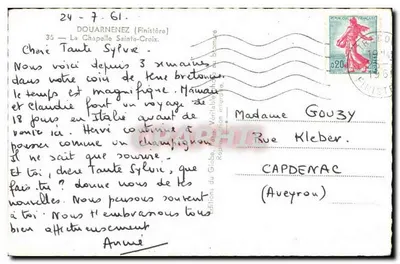 24-7-61.
DOUARNENEZ (Finistère)
35 - La Chapelle Sainte-Croix.
Chère Tante Sylvie.
Nous voici depuis 3 semaines
dans notre coin de terre bretonne
le temps est magnifique. Maman
et Claudie font un voyage de
18 jours en Italie avant de
venir ici. Hervé continue à
pousser comme un champignon
Il ne sait que sourire.
Et toi, chère Tante Sylvie, que
fais-tu? donne nous de tes
nouvelles. Nous pensons souvent
à toi. Nous t'embrassons tous
bien affectueusement
Annie
Editions du Gabier
0,20
Madame GOUZY
Rue Kleber.
CAPDENAC
(Aveyron)